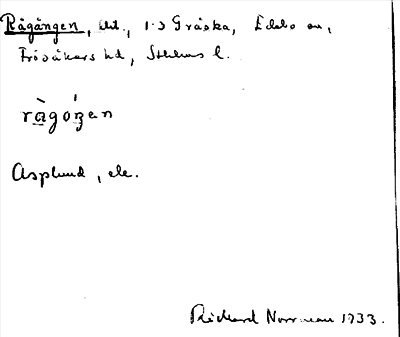 Rågången, 1:3 Gräska, Edebo sn,
Frösåkers hd, Sthlms l.
ràgóŋen
Asplund, ele.
Rickard Norrman 1933.